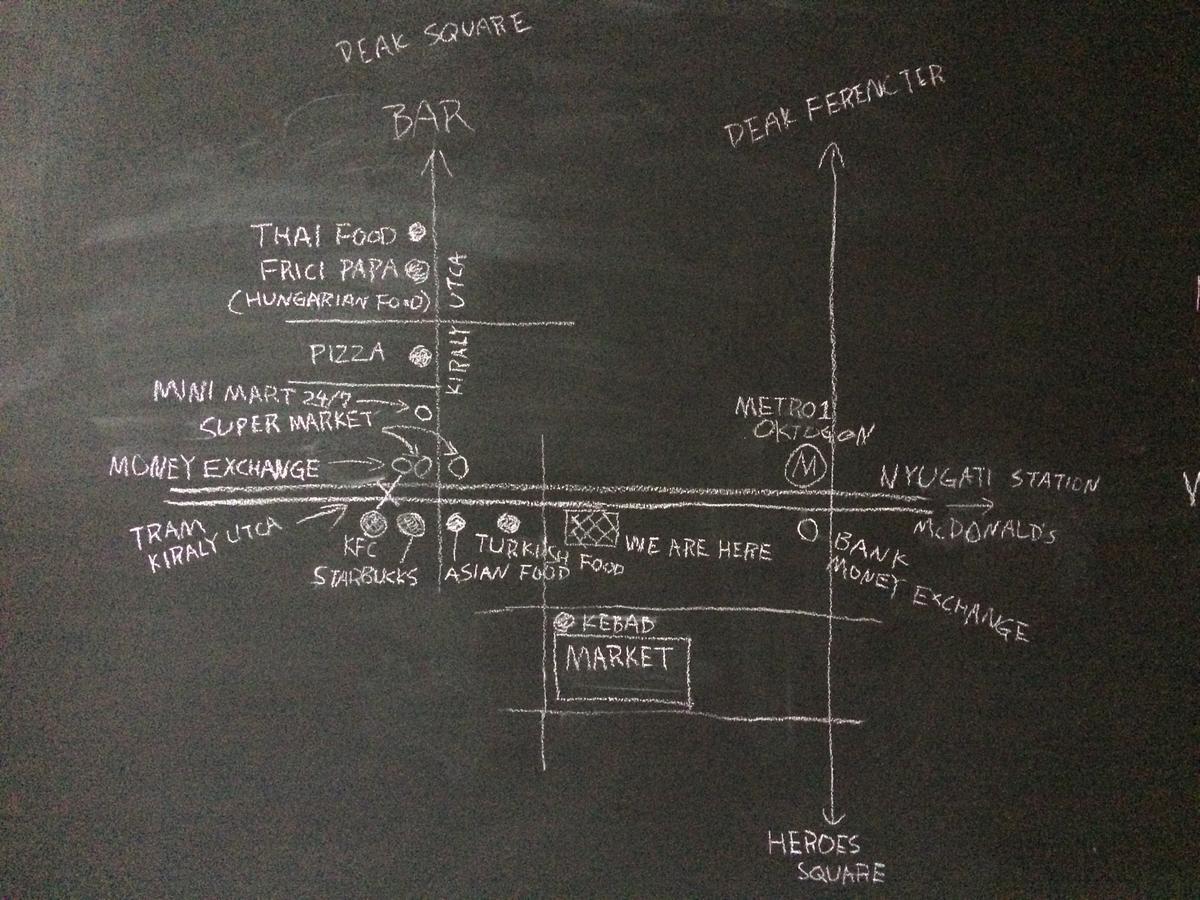 DEAK SQUARE
BAR
DEAK FERENCTER
THAI FOOD
FRICI PAPA
(HUNGARIAN FOOD)
KIRALY UTCA
PIZZA
MINI MART 24/7
SUPER MARKET
MONEY EXCHANGE
METRO1
OKTOGON
M
NYUGATI STATION
MCDONALD'S
TRAM
KIRALY UTCA
KFC
STARBUCKS
TURKISH FOOD
ASIAN FOOD
WE ARE HERE
BANK
MONEY EXCHANGE
KEBAD
MARKET
HEROES
SQUARE